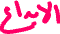 الابداع